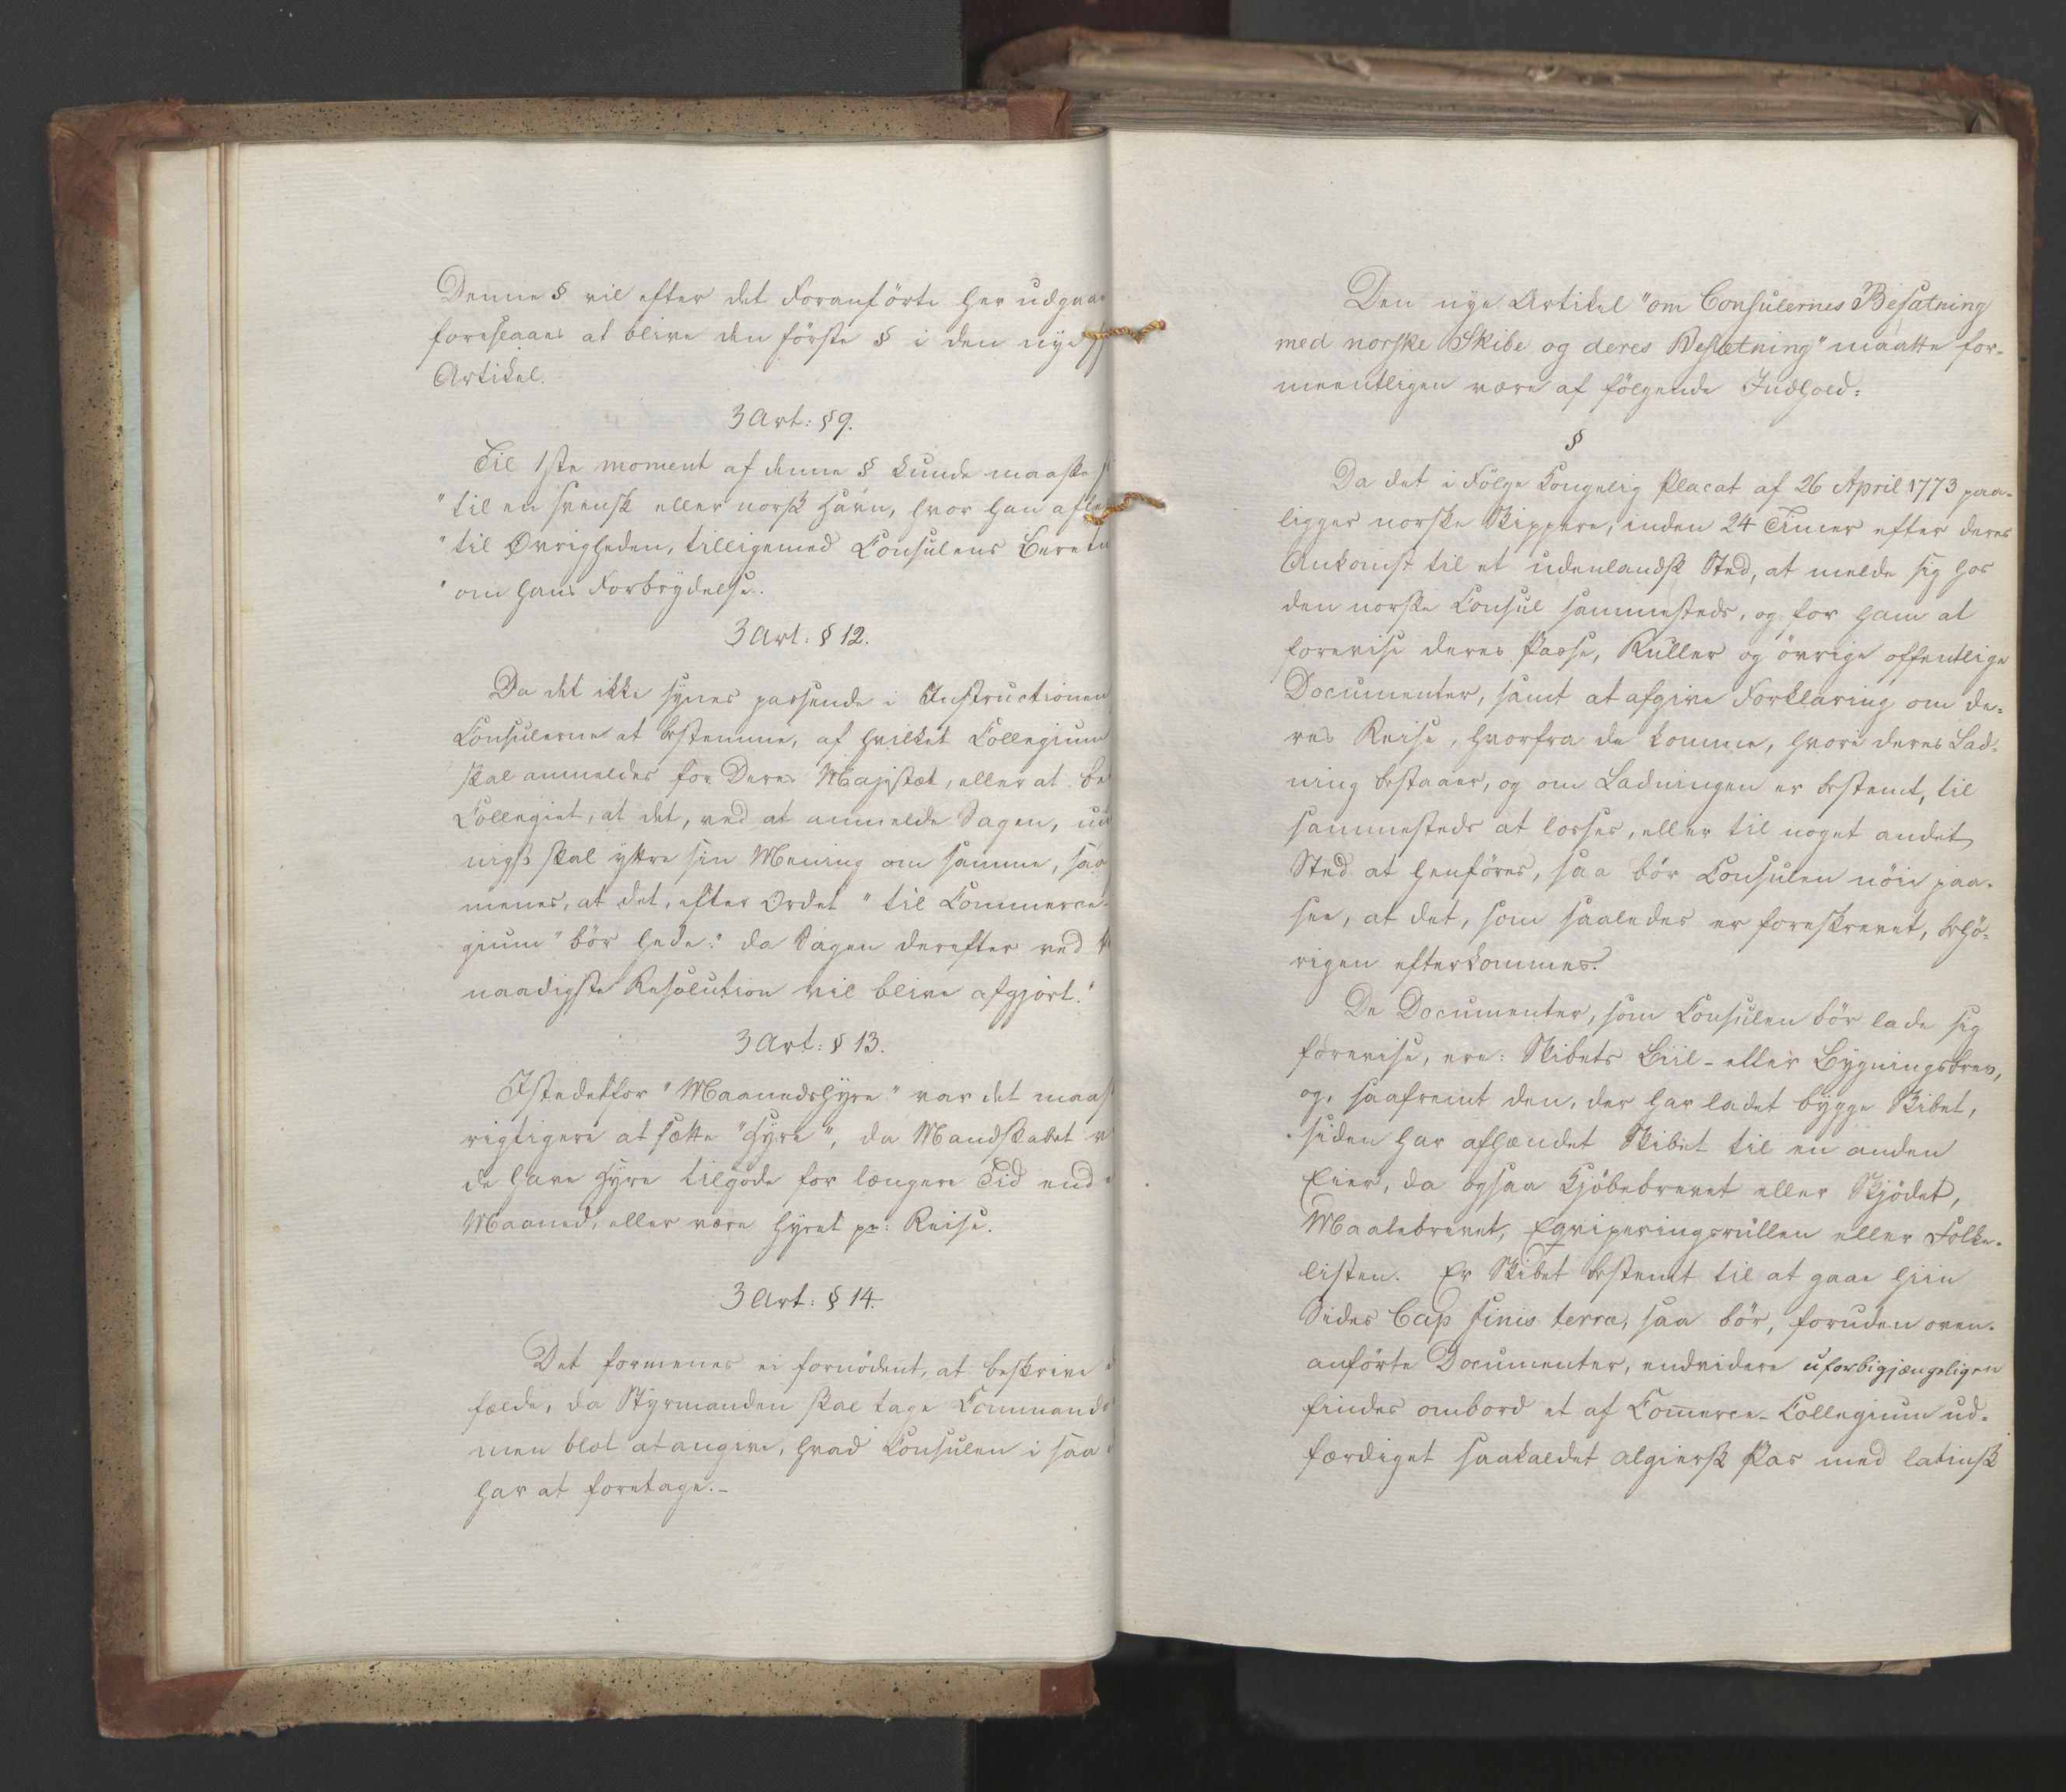 Denne § vil efter det Foranførte her udgaae
foreslaaes at blive den förste § i den nye
Artikel.
3 Art: § 9.
Til 1ste moment af denne § kunde maaske
"til en svensk eller norsk Havn, hvor han afle
"til Øvrigheden, tilligemed Consulens Beretn
"om hans Forbrydelse.
3 Art: § 12.
Da det ikke synes passende i Instructionen
Consulerne at bestemme, af hvilket Collegium
skal anmeldes for Deres Majestæt, eller at be
Collegiet, at det, ved at anmelde Sagen, un
nigst skal yttre sin Mening om samme, saa
menes, at det, efter Ordet "til Commerce-
gium" bör hede: "da Sagen derefter ved
naadigste Resolution vil blive afgjort."
3 Art: § 13.
Istedetfor "Maanedshyre" var det maas
rigtigere at sætte "Hyre", da Mandskabet
de have Hyre tilgode for længere Tid end
Maaned, eller være hyret pr: Reise.
3 Art: § 14.
Det formenes ei fornödent, at beskrive
fælde, da Styrmanden skal tage Commando
men blot at angive, hvad Consulen i saa
har at foretage.-
Den nye Artikel "om Consulernes Befatning
med norske Skibe og deres Besætning" maatte for-
meentligen være af fölgende Indhold:
§
Da det i Fölge Kongelig Placat af 26 April 1773 paa-
ligger norske Skippere, inden 24 Timer efter deres
Ankomst til et udenlandsk Sted, at melde sig hos
den norske Consul sammesteds, og for ham at
forevise deres Passe, Ruller og övrige offentlige
Documenter, samt at afgive Forklaring om de-
res Reise, hvorfra de komme, hvori deres Lad-
ning bestaaer, og om Ladningen er bestemt, til
sammesteds at losses, eller til noget andet
Sted at henföres, saa bör Consulen nöie paa-
see, at det, som saaledes er foreskrevet, behö-
rigen efterkommes.
De Documenter, som Consulen bör lade sig
forevise, ere: Skibets Biil- eller Bygningsbrev,
og, saafremt den, der har ladet bygge Skibet,
siden har afhændet Skibet til en anden
Eier, da ogsaa Kjöbebrevet eller Skjödet,
Maalebrevet, Eqviperingsrullen eller Folke-
listen. Er Skibet bestemt til at gaae hiin
Sides Cap finis terræ, saa bör, foruden oven-
anförte Documenter, endvidere uforbigjængeligen
findes ombord et af Comerce-Collegium ud-
færdiget saakaldet algiersk Pas med latinsk